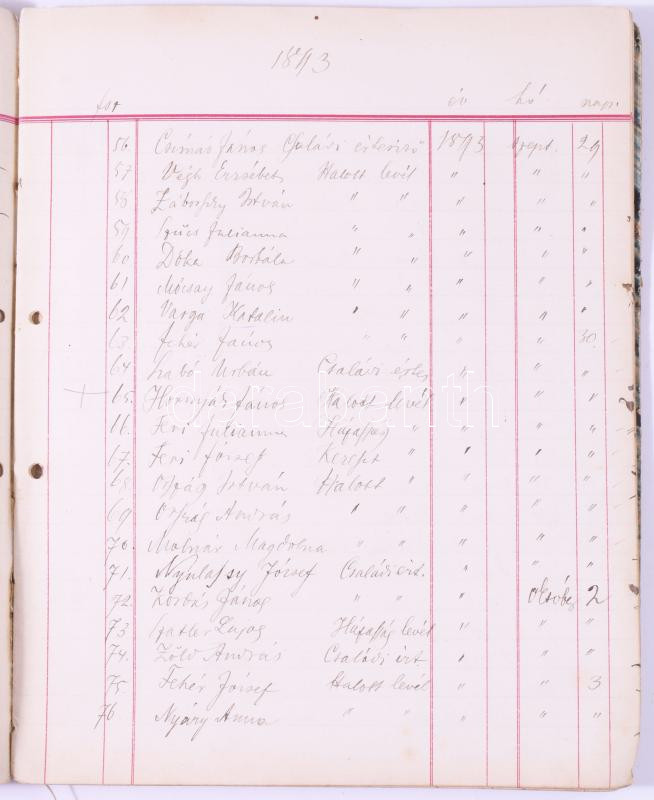 1893
fsz év hó nap.
56 Csimás János Családi értesítő 1893 szept. 29
57 Végh Erzsébet Halott levél " " "
58 Záborszky István " " " " "
59 Szűcs Julianna " " " " "
60 Dóka Borbála " " " " "
61 Mócsay János " " " " "
62 Varga Katalin " " " " "
63 Fehér János " " " " 30.
64 Szabó Urbán Családi értes " " "
65. Hornyák János Halott levél " " "
66 Feri Julianna Házassági " " " "
67. Feri József Kereszt " " " "
68 Ország István Halott " " " "
69 Ország András " " " " "
70. Molnár Magdolna " " " " "
71. Nyulassy József Családi ért. " " "
72. Kordás János " " " október 2
73 Sattler Lajos Házasság levél " " "
74. Zöld András Családi ért " " "
75 Fehér József Halott levél " " 3
76 Nyáry Anna " " " " "
darabanth